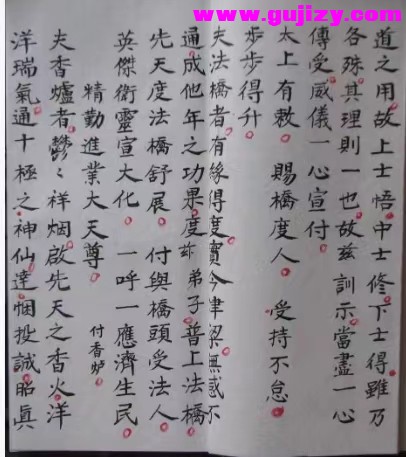 www.gujizy.com
道之用故上士悟中士修下士得雖乃
各殊其理則一也故茲訓示當盡一心
傳受威儀一心宣付
太上有敕 賜橋度人 受持不怠
步步得升
夫法橋者有緣得度實今津梁無惑不
通成他年之功果度茲弟子普上法橋
先天度法橋舒展 付與橋頭受法人
英傑衙靈宣大化 一呼一應濟生民
精勤進業大天尊
付香炉
夫香爐者鬱々祥烟啟先天之香火洋
洋瑞氣通十極之神仙達悃投誠昭真